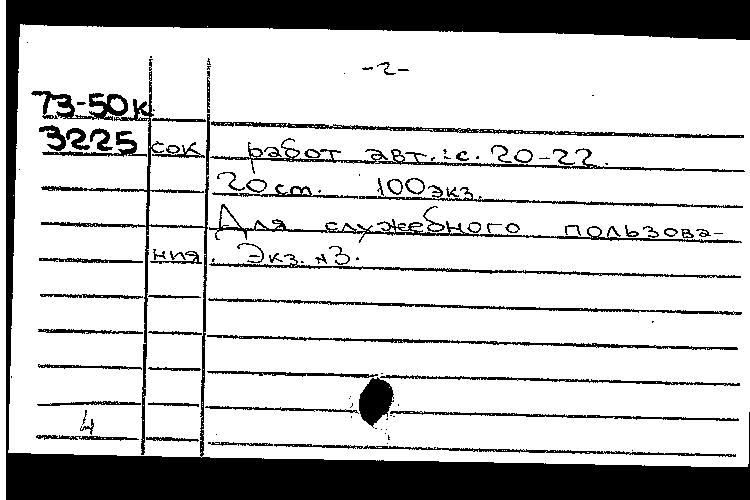 -2-
73-50к
3225 сок работ авт.: с. 20-22.
20 см. 100 экз.
Для служебного пользова-
ния. Экз. №3.
4